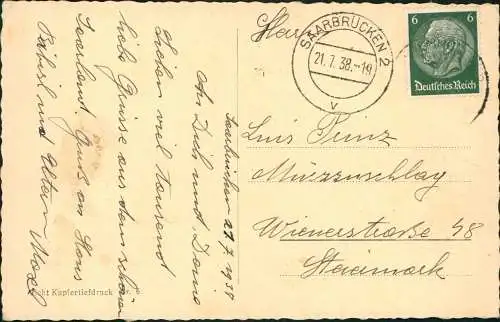 Saarbrücken 21.7.1938
An Dich und
Lieben viel tausend
liebe Grüsse aus dem schönen
Saarland. Gruss an Hans
und Eltern
Echt Kupfertiefdruck
SAARBRÜCKEN 2
21.7.38.-19
v
6 6
Deutsches Reich
Luis Prinz
Mürzzuschlag
Wienerstraße 48
Steiermark